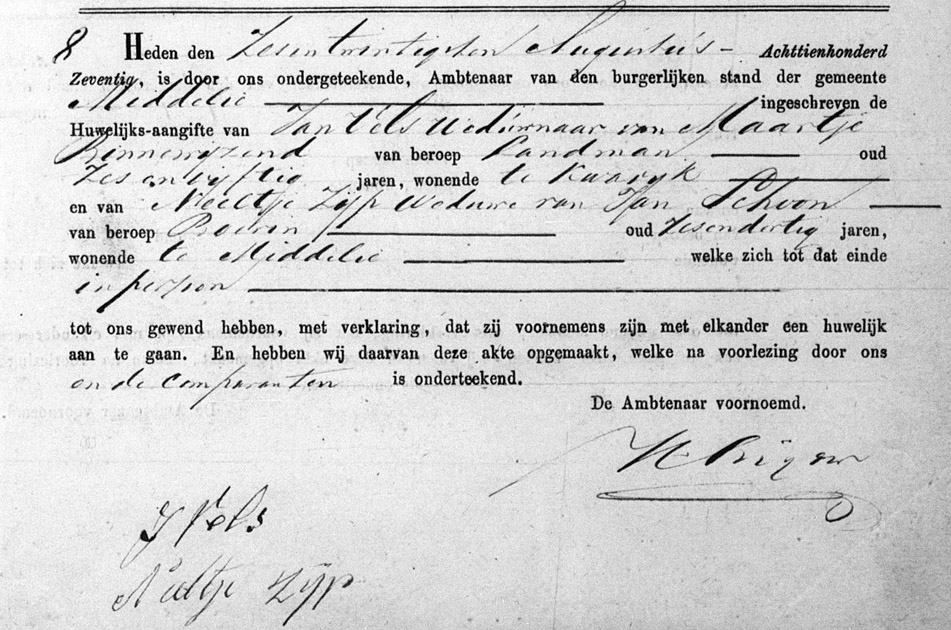 8 Heden den Zesentwintigsten Augustus - Achttienhonderd
Zeventig, is door ons ondergeteekende, Ambtenaar van den burgerlijken stand der gemeente
Middelie ingeschreven de
Huwelijks-aangifte van Jan Vels Weduwnaar van Maartje
Binnewijzend van beroep Landman oud
Zesenvyftig jaren, wonende te Kwadyk
en van Neeltje Zijp Weduwe van Jan Schoon
van beroep Boerin oud Zesendertig jaren,
wonende te Middelie welke zich tot dat einde
in persoon
tot ons gewend hebben, met verklaring, dat zij voornemens zijn met elkander een huwelijk
aan te gaan. En hebben wij daarvan deze akte opgemaakt, welke na voorlezing door ons
en de comparanten is onderteekend.
De Ambtenaar voornoemd.
J Vels
Neeltje Zijp